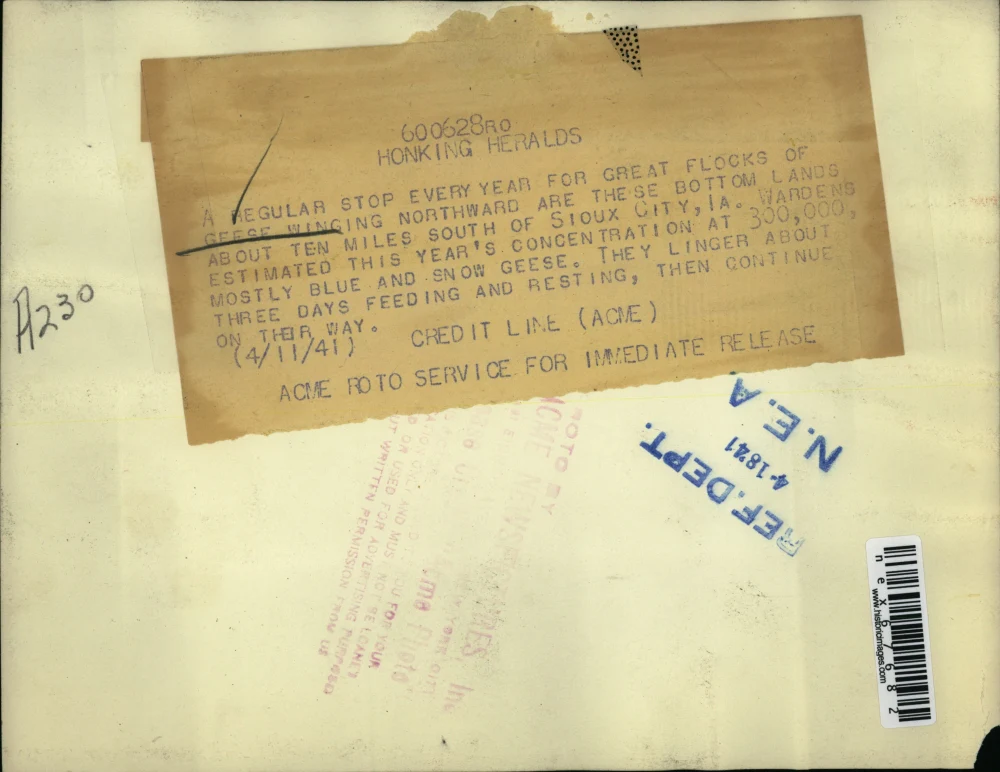 600628RO
HONKING HERALDS
A REGULAR STOP EVERY YEAR FOR GREAT FLOCKS OF
GEESE WINGING NORTHWARD ARE THESE BOTTOM LANDS
ABOUT TEN MILES SOUTH OF SIOUX CITY, IA. WARDENS
ESTIMATED THIS YEAR'S CONCENTRATION AT 300,000,
MOSTLY BLUE AND SNOW GEESE. THEY LINGER ABOUT
THREE DAYS FEEDING AND RESTING, THEN CONTINUE
ON THEIR WAY.
CREDIT LINE (ACME)
(4/11/41)
ACME ROTO SERVICE FOR IMMEDIATE RELEASE
A230
N.E.A.
4-1841
REF. DEPT.
PHOTO BY
ACME NEWSPICTURES Inc
NEW YORK CITY
Acme Photo
FOR YOUR
AND MUST NOT BE LOANED
OR USED FOR ADVERTISING PURPOSES
WRITTEN PERMISSION FROM US
nex67682
www.historicimages.com